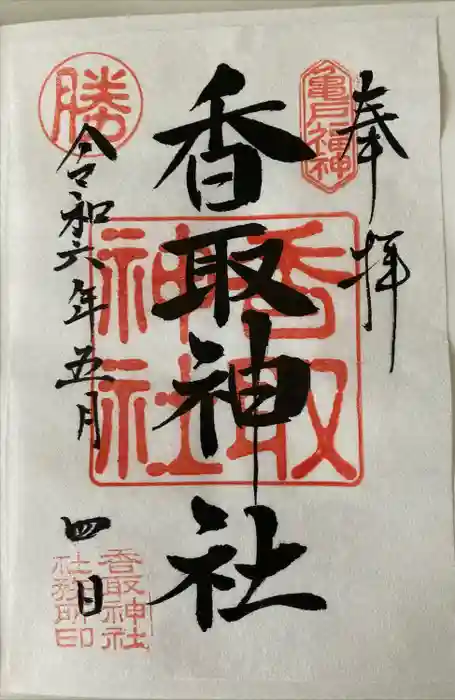 奉拝
亀戸福神
香取神社
香取神社
勝
令和六年五月四日
香取神社
社務所印